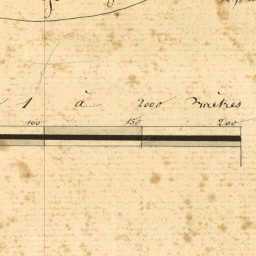 1 à 2000 Mètres
100 150 200